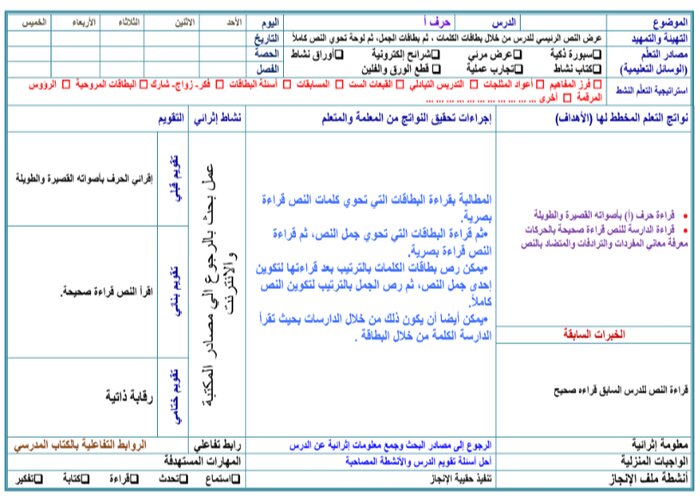 الموضوع الدرس حرف أ اليوم الأحد الاثنين الثلاثاء الأربعاء الخميس
التهيئة والتمهيد عرض النص الرئيسي للدرس من خلال بطاقات الكلمات ، ثم بطاقات الجمل، ثم لوحة تحوي النص كاملاً التاريخ
مصادر التعلم ☐سبورة ذكية ☐عرض مرئي ☐شرائح إلكترونية ☐أوراق نشاط الحصة
(الوسائل التعليمية) ☐كتاب نشاط ☐تجارب عملية ☐ قطع الورق والفلين الفصل
استراتيجية التعلم النشط ☐ فرز المفاهيم ☐ أعواد المثلجات ☐ التدريس التبادلي ☐ القبعات الست ☐ المسابقات ☐ أسئلة البطاقات ☐ فكر- زواج- شارك ☐ البطاقات المروحية ☐ الرؤوس
المرقمة ☐ أخرى ... ... ... ... ... ... ... ... ... ... ...
نواتج التعلم المخطط لها (الأهداف) إجراءات تحقيق النواتج من المعلمة والمتعلم نشاط إثرائي التقويم
• قراءة حرف (أ) بأصواته القصيرة والطويلة
• قراءة الدارسة للنص قراءة صحيحة بالحركات
معرفة معاني المفردات والترادفات والمتضاد بالنص
الخبرات السابقة
قراءة النص للدرس السابق قراءه صحيح
المطالبة بقراءة البطاقات التي تحوي كلمات النص قراءة
بصرية.
•ثم قراءة البطاقات التي تحوي جمل النص، ثم قراءة
النص قراءة بصرية.
•يمكن رص بطاقات الكلمات بالترتيب بعد قراءتها لتكوين
إحدى جمل النص، ثم رص الجمل بالترتيب لتكوين النص
كاملاً.
•يمكن أيضا أن يكون ذلك من خلال الدارسات بحيث تقرأ
الدارسة الكلمة من خلال البطاقة .
عمل بحث بالرجوع الي مصادر المكتبة
والانترنت
تقويم قبلي
إقرائي الحرف بأصواته القصيرة والطويلة
تقويم بنائي
اقرأ النص قراءة صحيحة.
تقويم ختامي
رقابة ذاتية
معلومة إثرائية الرجوع إلى مصادر البحث وجمع معلومات إثرائية عن الدرس رابط تفاعلي الروابط التفاعلية بالكتاب المدرسي
الواجبات المنزلية أحل أسئلة تقويم الدرس والأنشطة المصاحبة المهارات المستهدفة
أنشطة ملف الإنجاز تنفيذ حقيبة الإنجاز ☐استماع ☐تحدث ☐قراءة ☐كتابة ☐تفكير